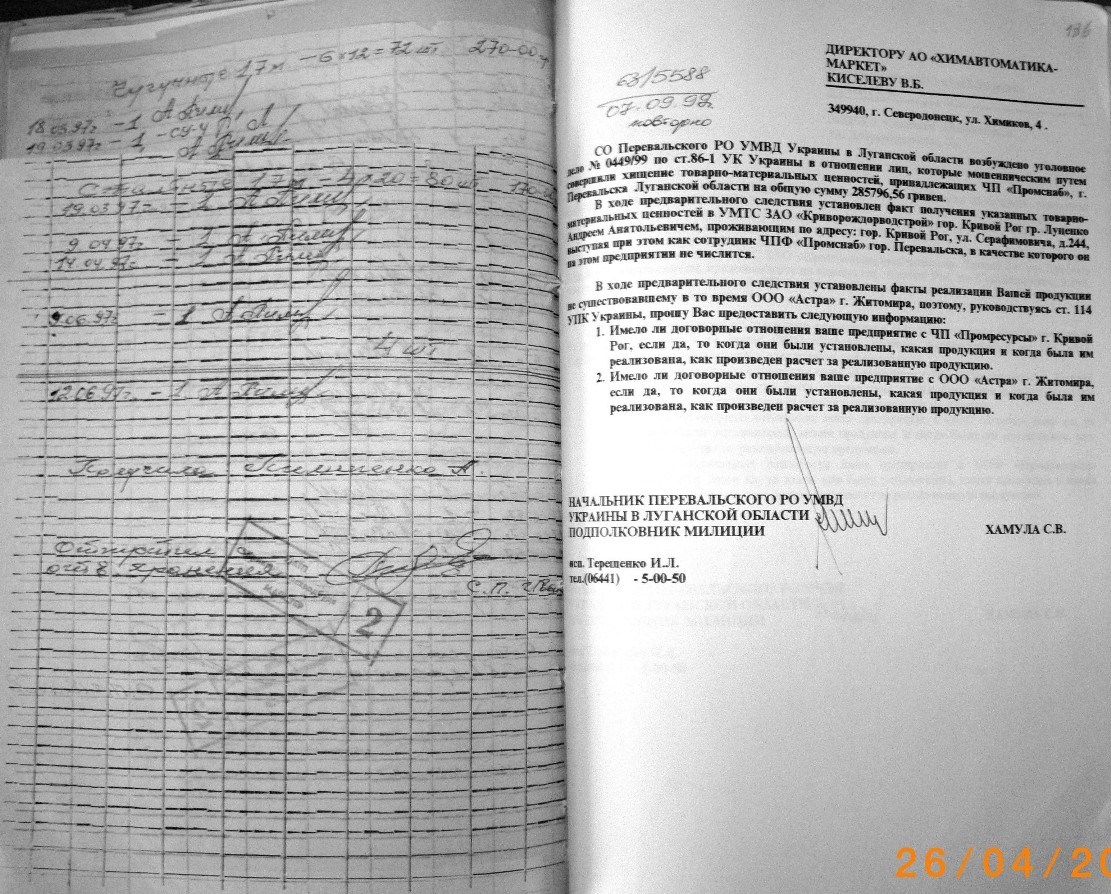 Чугунные 17 м - 6х12=72 шт 270-00
18.03.97г - 1
19.03.97г - 1
17 м 4х20=80 шт
19.03.97г - 1
9.04.97г - 1
14.04.97г - 1
9.06.97г - 1
4 шт
12.06.97г. - 1
Получила: А.
отв хранения
2
136
ДИРЕКТОРУ АО «ХИМАВТОМАТИКА-
МАРКЕТ»
КИСЕЛЕВУ В.Б.
63/5588
07.09.99г.
повторно
349940, г. Северодонецк, ул. Химиков, 4 .
СО Перевальского РО УМВД Украины в Луганской области возбуждено уголовное
дело № 0449/99 по ст.86-1 УК Украины в отношении лиц, которые мошенническим путем
совершили хищение товарно-материальных ценностей, принадлежащих ЧП «Промснаб», г.
Перевальска Луганской области на общую сумму 285796,56 гривен.
В ходе предварительного следствия установлен факт получения указанных товарно-
материальных ценностей в УМТС ЗАО «Криворождорводстрой» гор. Кривой Рог гр. Луценко
Андреем Анатольевичем, проживающим по адресу: гор. Кривой Рог, ул. Серафимовича, д.244,
выступая при этом как сотрудник ЧПФ «Промснаб» гор. Перевальска, в качестве которого он
на этом предприятии не числится.
В ходе предварительного следствия установлены факты реализации Вашей продукции
не существовавшему в то время ООО «Астра» г. Житомира, поэтому, руководствуясь ст. 114
УПК Украины, прошу Вас предоставить следующую информацию:
1. Имело ли договорные отношения ваше предприятие с ЧП «Промресурсы» г. Кривой
Рог, если да, то когда они были установлены, какая продукция и когда была им
реализована, как произведен расчет за реализованную продукцию.
2. Имело ли договорные отношения ваше предприятие с ООО «Астра» г. Житомира,
если да, то когда они были установлены, какая продукция и когда была им
реализована, как произведен расчет за реализованную продукцию.
НАЧАЛЬНИК ПЕРЕВАЛЬСКОГО РО УМВД
УКРАИНЫ В ЛУГАНСКОЙ ОБЛАСТИ
ПОДПОЛКОВНИК МИЛИЦИИ ХАМУЛА С.В.
исп. Терещенко И.Л.
тел.(06441) - 5-00-50
26/04/20